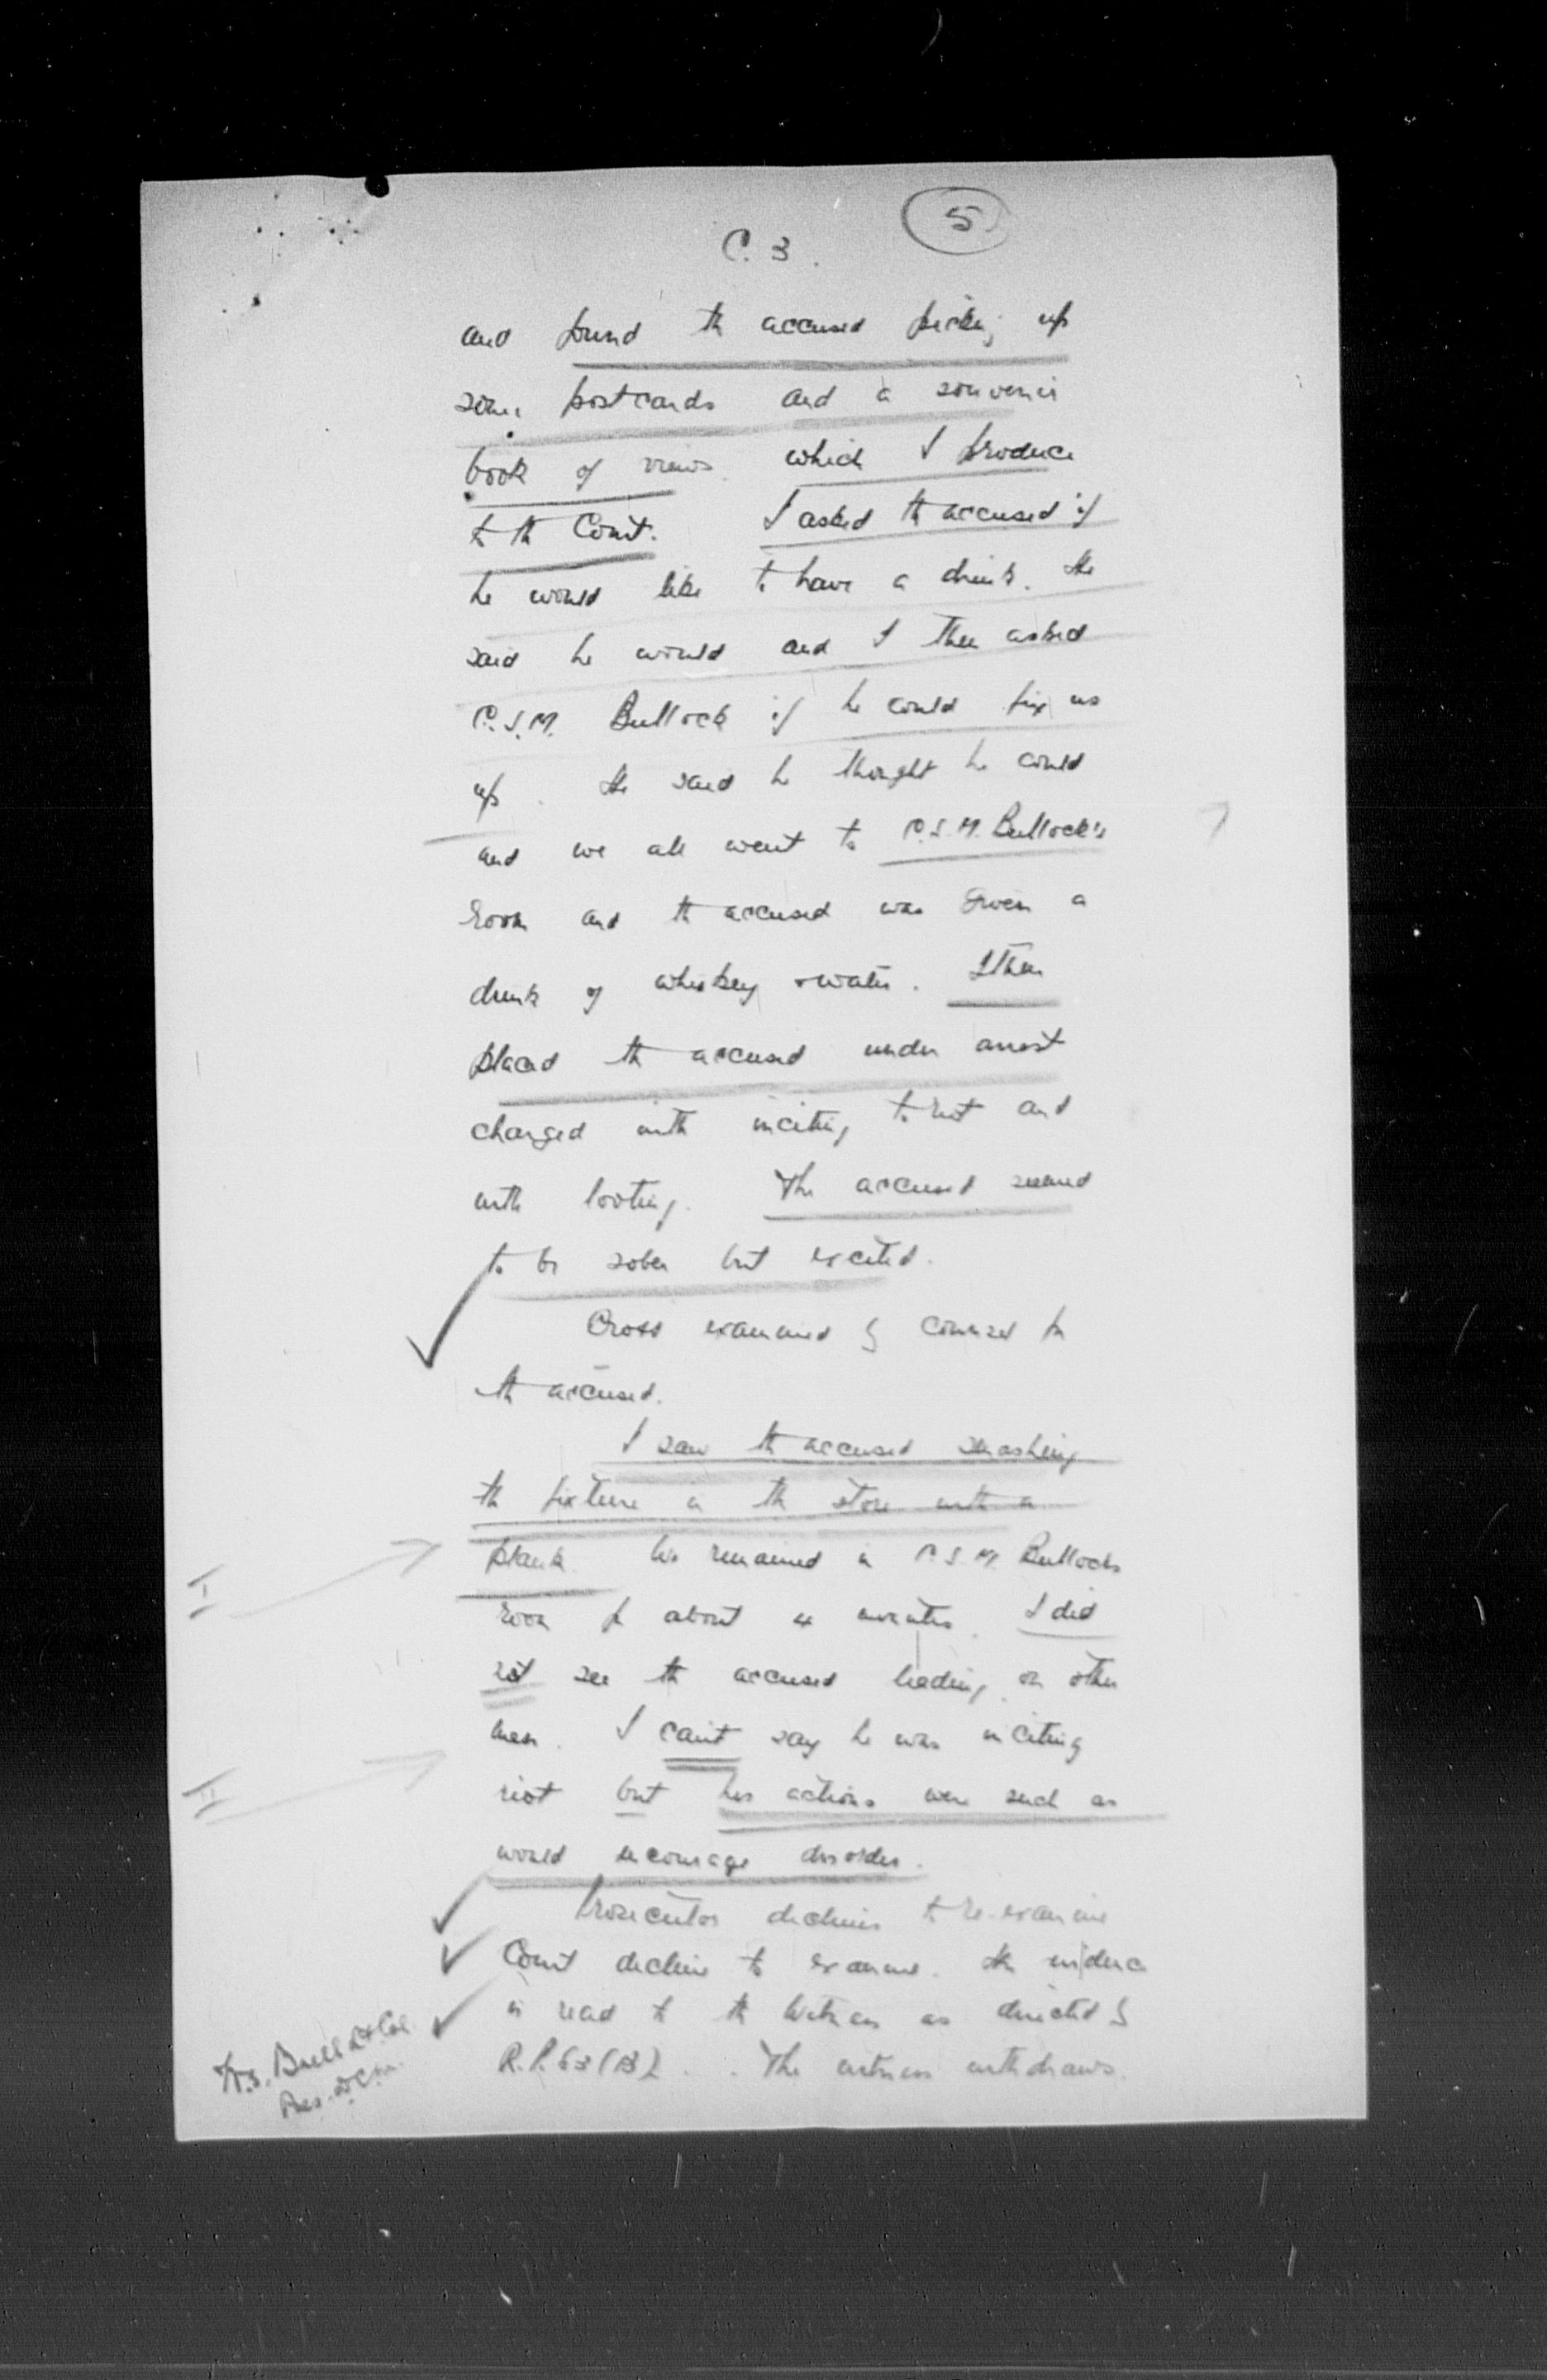 5
C. 3.
and found th accused picking up
some postcards and a souvenir
book of views which I produce
to th Court. I asked th accused if
he would like to have a drink. He
said he would and I then asked
C.S.M. Bullock if he could fix us
up. He said he thought he could
and we all went to C.S.M. Bullock's
room and th accused was given a
drink of whiskey + water. I then
placed th accused under arrest
charged with inciting to riot and
with looting. The accused seemed
to be sober but excited.
Cross examined by counsel for
th accused.
I saw th accused smashing
th fixture in th store with a
plank. He remained in C.S.M. Bullocks
room for about minutes. I did
not see th accused leading on other
men. I can't say he was inciting
riot but his actions were such as
would encourage disorder.
Prosecutor declines to re-examine
Court decline to examine. The evidence
is read to th witness as directed by
R.P. 83 (B). The witness withdraws.
I
II
Bell Lt Col.
Pres. DCM.